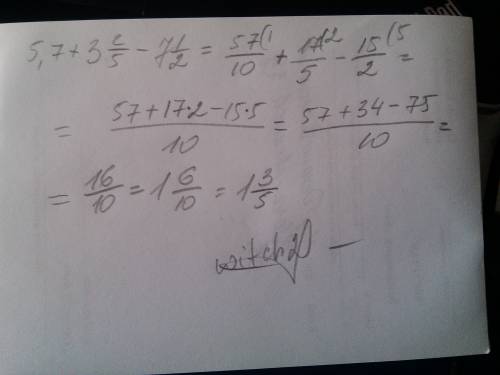 5,7 + 3 2/5 - 7 1/2 = 57(1/10 + 17(2/5 - 15(5/2 =
= 57+17·2-15·5/10 = 57+34-75/10 =
= 16/10 = 1 6/10 = 1 3/5